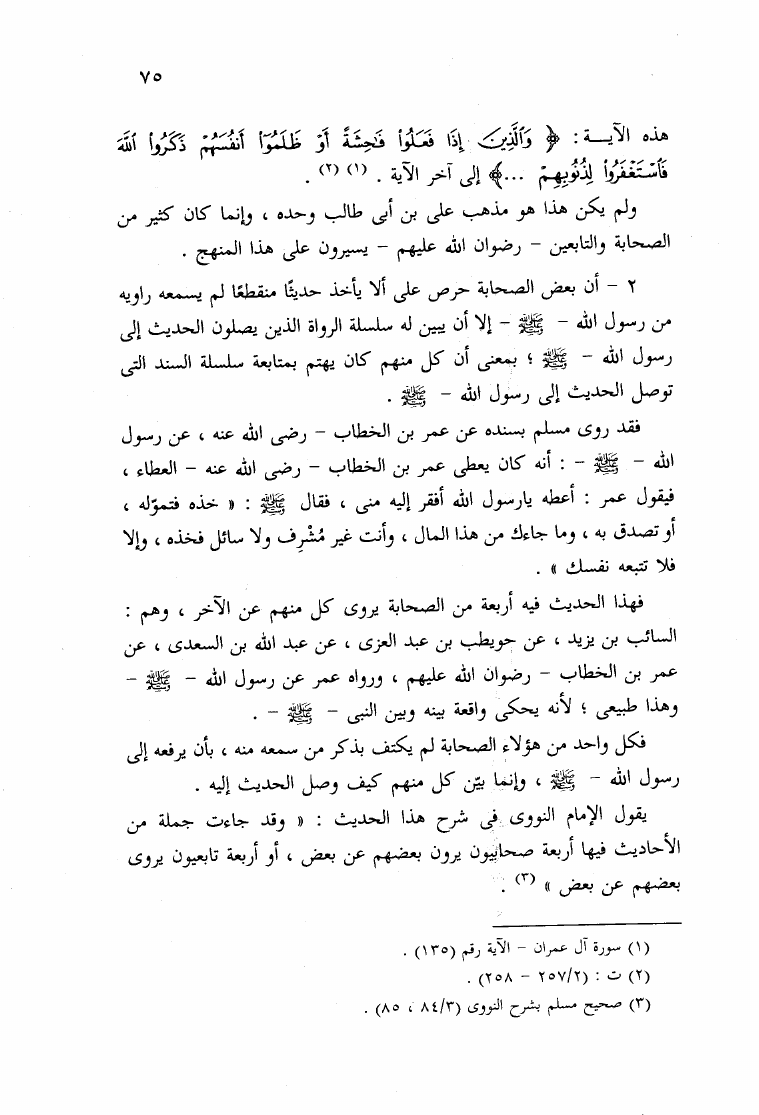 ٧٥
هذه الآيـــة : ﴿ وَٱلَّذِينَ إِذَا فَعَلُوا۟ فَٰحِشَةً أَوْ ظَلَمُوٓا۟ أَنفُسَهُمْ ذَكَرُوا۟ ٱللَّهَ
فَٱسْتَغْفَرُوا۟ لِذُنُوبِهِمْ ...﴾ إلى آخر الآية . (١) (٢) .
ولم يكن هذا هو مذهب على بن أبى طالب وحده ، وإنما كان كثير من
الصحابة والتابعين – رضوان الله عليهم – يسيرون على هذا المنهج .
٢ – أن بعض الصحابة حرص على ألا يأخذ حديثًا منقطعًا لم يسمعه راويه
من رسول الله – ﷺ – إلا أن يبين له سلسلة الرواة الذين يصلون الحديث إلى
رسول الله – ﷺ ؛ بمعنى أن كل منهم كان يهتم بمتابعة سلسلة السند التى
توصل الحديث إلى رسول الله – ﷺ .
فقد روى مسلم بسنده عن عمر بن الخطاب – رضى الله عنه ، عن رسول
الله – ﷺ – : أنه كان يعطى عمر بن الخطاب – رضى الله عنه – العطاء ،
فيقول عمر : أعطه يارسول الله أفقر إليه منى ، فقال ﷺ : « خذه فتموّله ،
أو تصدق به ، وما جاءك من هذا المال ، وأنت غير مُشْرِف ولا سائل فخذه ، وإلا
فلا تتبعه نفسك » .
فهذا الحديث فيه أربعة من الصحابة يروى كل منهم عن الآخر ، وهم :
السائب بن يزيد ، عن حويطب بن عبد العزى ، عن عبد الله بن السعدى ، عن
عمر بن الخطاب – رضوان الله عليهم ، ورواه عمر عن رسول الله – ﷺ –
وهذا طبيعى ؛ لأنه يحكى واقعة بينه وبين النبى – ﷺ – .
فكل واحد من هؤلاء الصحابة لم يكتف بذكر من سمعه منه ، بأن يرفعه إلى
رسول الله – ﷺ ، وإنما بيّن كل منهم كيف وصل الحديث إليه .
يقول الإمام النووى فى شرح هذا الحديث : « وقد جاءت جملة من
الأحاديث فيها أربعة صحابيون يرون بعضهم عن بعض ، أو أربعة تابعيون يروى
بعضهم عن بعض » (٣) .
(١) سورة آل عمران – الآية رقم (١٣٥) .
(٢) ت : (٢٥٧/٢ – ٢٥٨) .
(٣) صحيح مسلم بشرح النووى (٨٤/٣ ، ٨٥) .